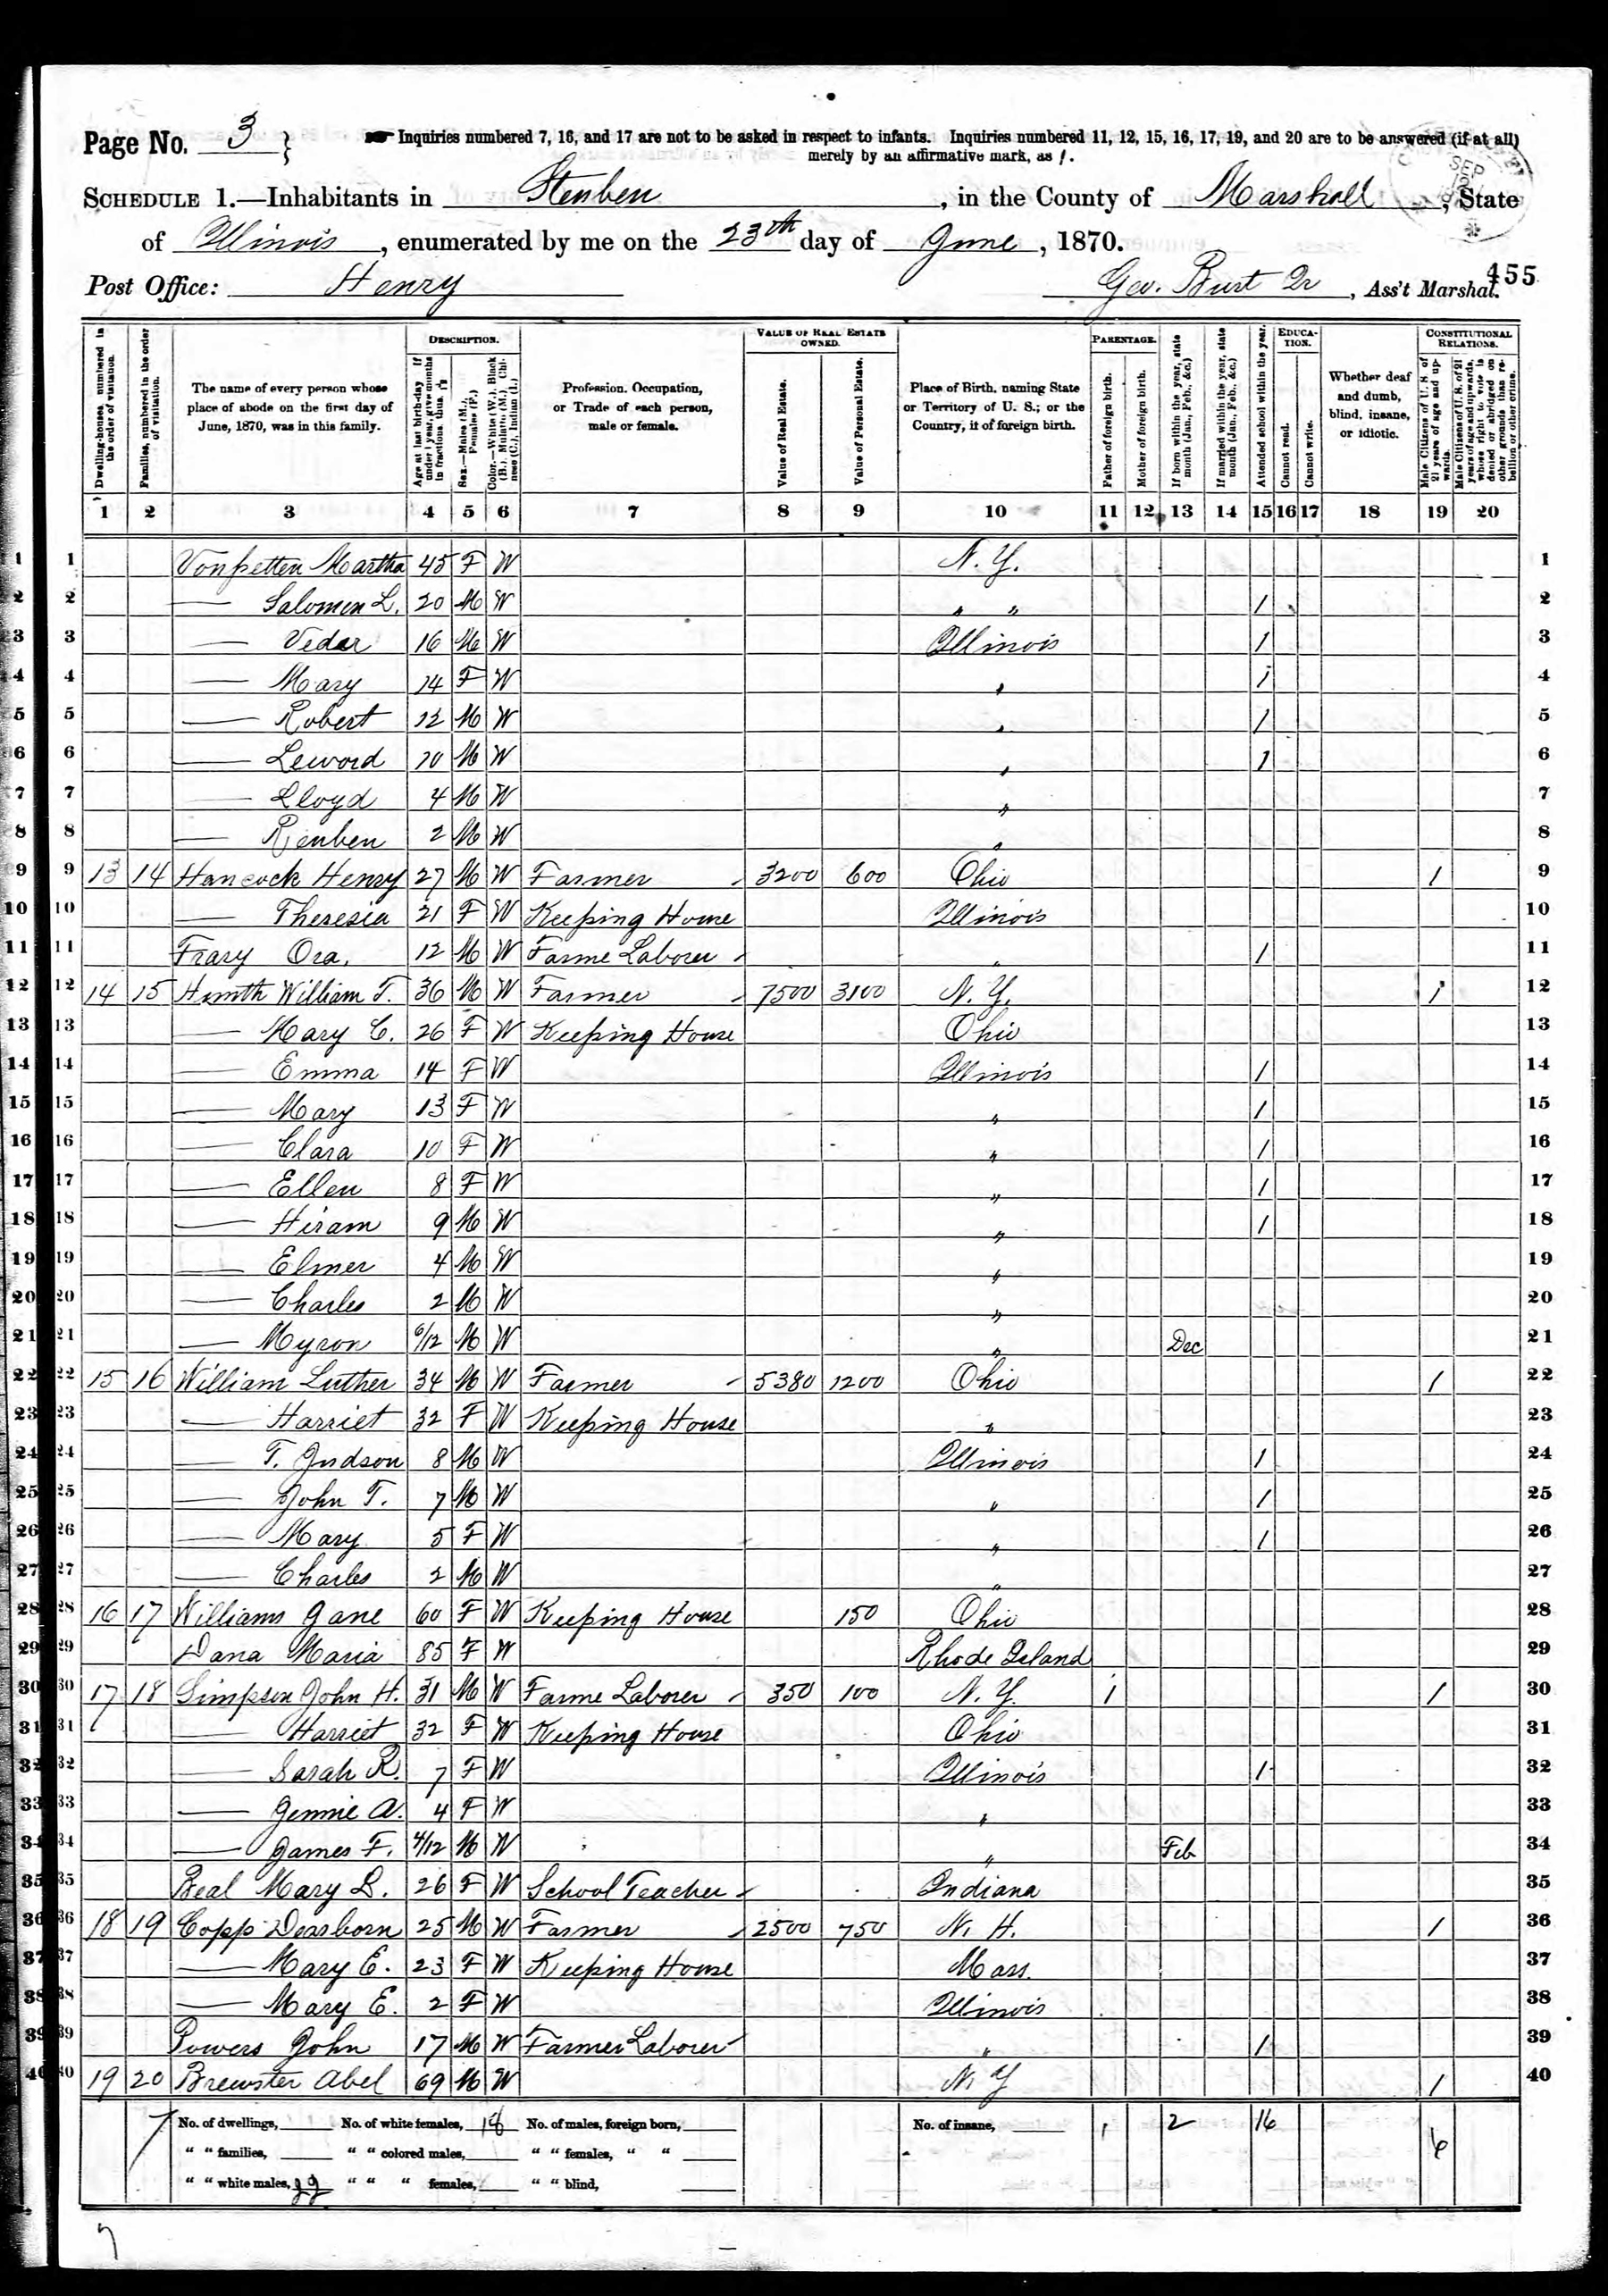 Page No. 3 } Inquiries numbered 7, 16, and 17 are not to be asked in respect to infants. Inquiries numbered 11, 12, 15, 16, 17, 19, and 20 are to be answered (if at all)
merely by an affirmative mark, as /.
SCHEDULE 1.—Inhabitants in Steuben, in the County of Marshall, State
of Illinois, enumerated by me on the 23th day of June, 1870.
Post Office: Henry Geo. Burt Jr, Ass't Marshal. 455
SEP
Dwelling-houses, numbered in the order of visitation.
Families, numbered in the order of visitation.
The name of every person whose place of abode on the first day of June, 1870, was in this family.
DESCRIPTION.
Age at last birth-day. If under 1 year, give months in fractions, thus,
Sex.—Males (M.), Females (F.)
Color.—White (W.), Black (B.), Mulatto (M.), Chinese (C.), Indian (I.)
Profession, Occupation, or Trade of each person, male or female.
VALUE OF REAL ESTATE OWNED.
Value of Real Estate.
Value of Personal Estate.
Place of Birth, naming State or Territory of U. S.; or the Country, if of foreign birth.
PARENTAGE.
Father of foreign birth.
Mother of foreign birth.
If born within the year, state month (Jan., Feb., &c.)
If married within the year, state month (Jan., Feb., &c.)
Attended school within the year.
EDUCATION.
Cannot read.
Cannot write.
Whether deaf and dumb, blind, insane, or idiotic.
CONSTITUTIONAL RELATIONS.
Male Citizens of U. S. of 21 years of age and upwards.
Male Citizens of U. S. of 21 years of age and upwards, whose right to vote is denied or abridged on other grounds than rebellion or other crime.
1 2 3 4 5 6 7 8 9 10 11 12 13 14 15 16 17 18 19 20
1 1 Vonpetten Martha 45 F W N. Y. 1
2 2 — Salomen L. 20 M W " " / 2
3 3 — Vedar 16 M W Illinois / 3
4 4 — Mary 14 F W " / 4
5 5 — Robert 12 M W " / 5
6 6 — Leword 10 M W " / 6
7 7 — Lloyd 4 M W " 7
8 8 — Reuben 2 M W " 8
9 9 13 14 Hancock Henry 27 M W Farmer 3200 600 Ohio / 9
10 10 — Theresia 21 F W Keeping House Illinois 10
11 11 Frary Ora. 12 M W Farme Laborer " / 11
12 12 14 15 William T. 36 M W Farmer 7500 3100 N. Y. / 12
13 13 — Mary C. 26 F W Keeping House Ohio 13
14 14 — Emma 14 F W Illinois / 14
15 15 — Mary 13 F W " / 15
16 16 — Clara 10 F W " / 16
17 17 — Ellen 8 F W " / 17
18 18 — Hiram 9 M W " / 18
19 19 — Elmer 4 M W " 19
20 20 — Charles 2 M W " 20
21 21 — Myron 6/12 M W " Dec 21
22 22 15 16 William Luther 34 M W Farmer 5380 1200 Ohio / 22
23 23 — Harriet 32 F W Keeping House " 23
24 24 — T. Judson 8 M W Illinois / 24
25 25 — John T. 7 M W " / 25
26 26 — Mary 5 F W " / 26
27 27 — Charles 2 M W " 27
28 28 16 17 Williams Jane 60 F W Keeping House 150 Ohio 28
29 29 Dana Maria 85 F W Rhode Island 29
30 30 17 18 Simpson John H. 31 M W Farme Laborer 350 100 N. Y. / / 30
31 31 — Harriet 32 F W Keeping House Ohio 31
32 32 — Sarah R. 7 F W Illinois / 32
33 33 — Jennie A. 4 F W " 33
34 34 — James F. 4/12 M W " Feb 34
35 35 Beal Mary L. 26 F W School Teacher Indiana 35
36 36 18 19 Copp Dearborn 25 M W Farmer 2500 750 N. H. / 36
37 37 — Mary E. 23 F W Keeping House Mass. 37
38 38 — Mary E. 2 F W Illinois 38
39 39 Powers John 17 M W Farmer Laborer " / 39
40 40 19 20 Brewster Abel 69 M W N. Y / 40
7 No. of dwellings, No. of white females, 18 No. of males, foreign born, No. of insane, 1 2 16 6
" " families, " " colored males, " " females, " "
" " white males, 22 " " " females, " " blind,